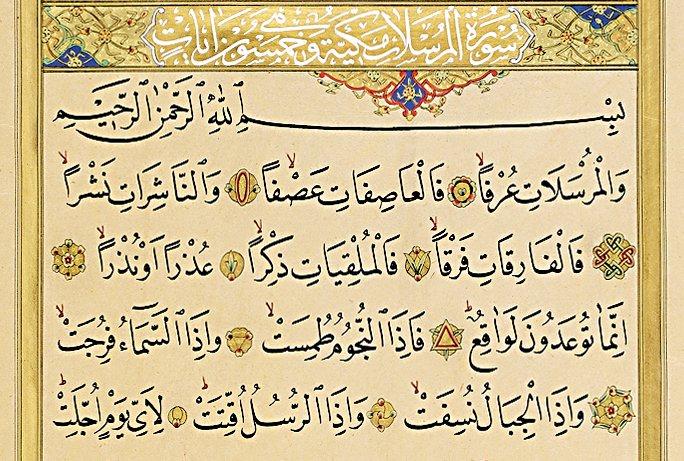 سُورَةُ الْمُرْسَلَاتِ مَكِّيَّةٌ وَهِيَ خَمْسُونَ اٰيَاتٍ
بِسْمِ اللّٰهِ الرَّحْمٰنِ الرَّحِيمِ
وَالْمُرْسَلَاتِ عُرْفاً فَالْعَاصِفَاتِ عَصْفاً وَالنَّاشِرَاتِ نَشْراً
فَالْفَارِقَاتِ فَرْقاً فَالْمُلْقِيَاتِ ذِكْراً عُذْراً اَوْ نُذْراً
اِنَّمَا تُوعَدُونَ لَوَاقِعٌ فَاِذَا النُّجُومُ طُمِسَتْ وَاِذَا السَّمَاءُ فُرِجَتْ
وَاِذَا الْجِبَالُ نُسِفَتْ وَاِذَا الرُّسُلُ اُقِّتَتْ لِاَيِّ يَوْمٍ اُجِّلَتْ